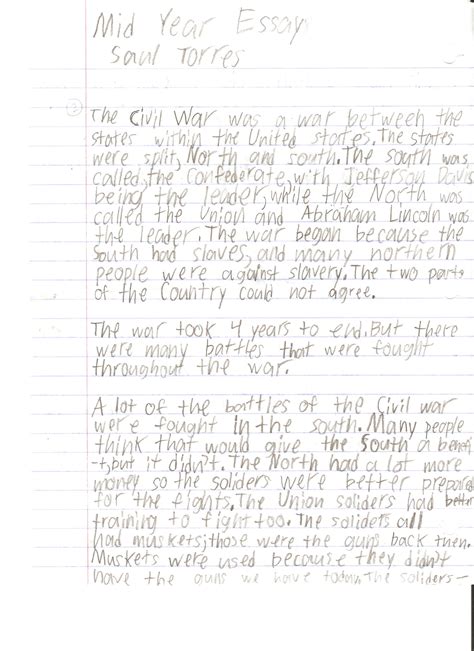 Mid Year Essay
Saul Torres
3
The Civil War was a war between the
states within the United States. The states
were split, North and south. The south was
called, the Confederate, with Jefferson Davis
being the leader, while the North was
called the Union and Abraham Lincoln was
the leader. The war began because the
South had slaves, and many northern
people were against slavery. The two parts
of the Country could not agree.
The war took 4 years to end. But there
were many battles that were fought
throughout the war.
A lot of the battles of the Civil war
were fought in the south. Many people
think that would give the South a benefi
-t, but it didn't. The North had a lot more
money so the soliders were better prepared
for the fights. The Union soliders had better
training to fight too. The soliders all
had muskets; those were the guns back then.
Muskets were used because they didn't
have the guns we have today. The soliders-